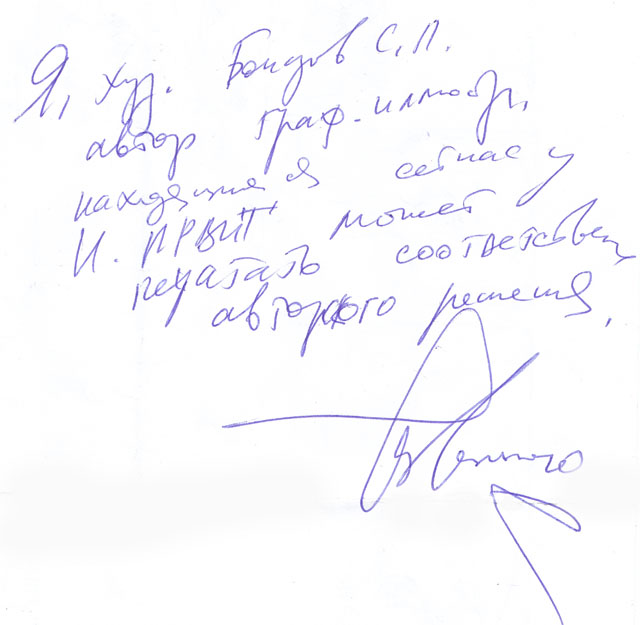 Я, худ. Бондов С.П.
автор граф. иллюстр.
находящиеся сейчас у
И. ПРВИТ может
печатать соответствен
авторского решения.